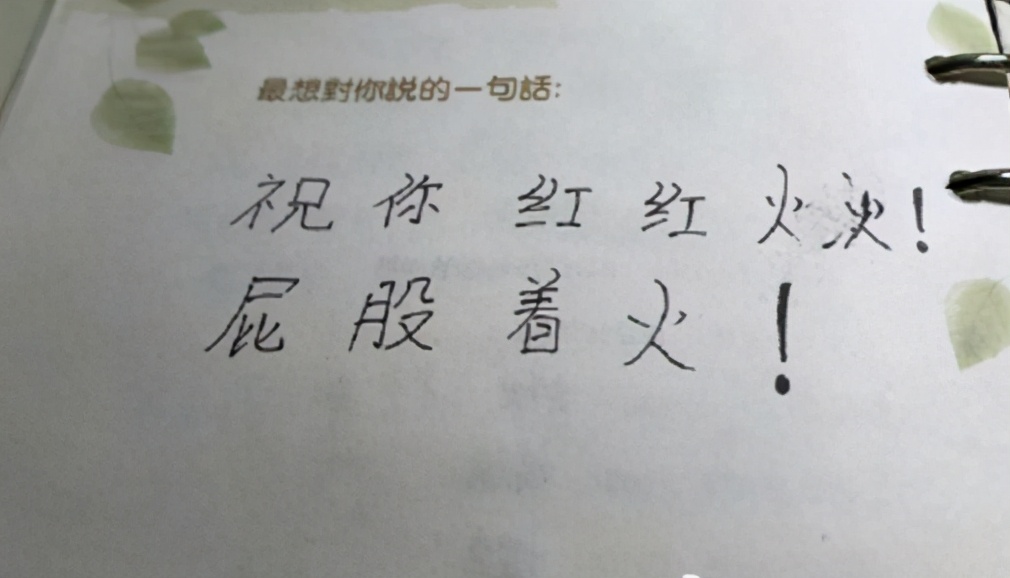 最想對你説的一句話:
祝你红红火火!
屁股着火!